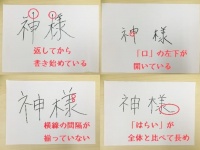 神様
返してから
書き始めている
神様
「口」の左下が
開いている
神様
横線の間隔が
揃っていない
神様
「はらい」が
全体と比べて長め